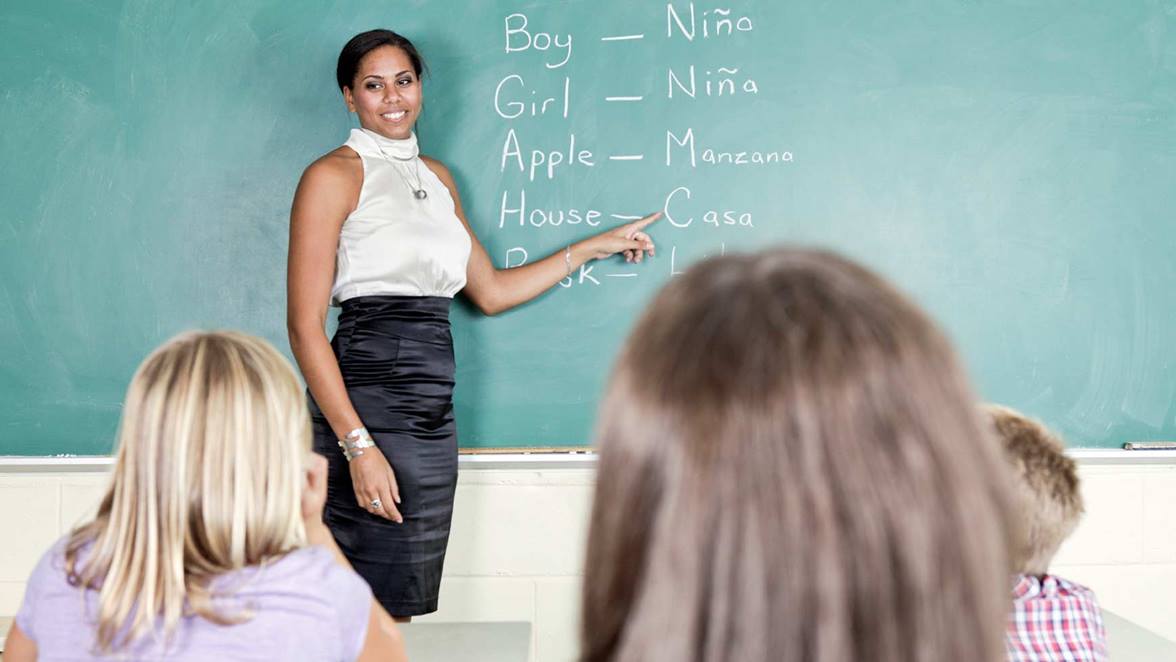 Boy — Niño
Girl — Niña
Apple — Manzana
House — Casa